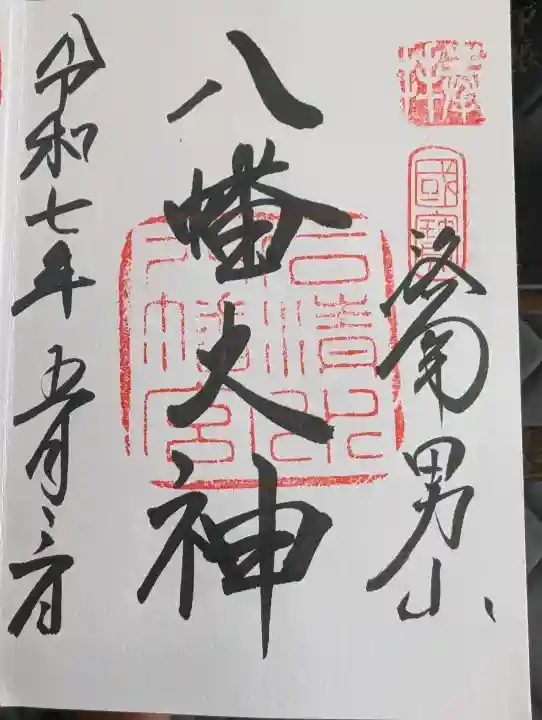 奉拜
國寶
洛南男山
八幡大神
石清水
八幡宮
令和七年五月三日